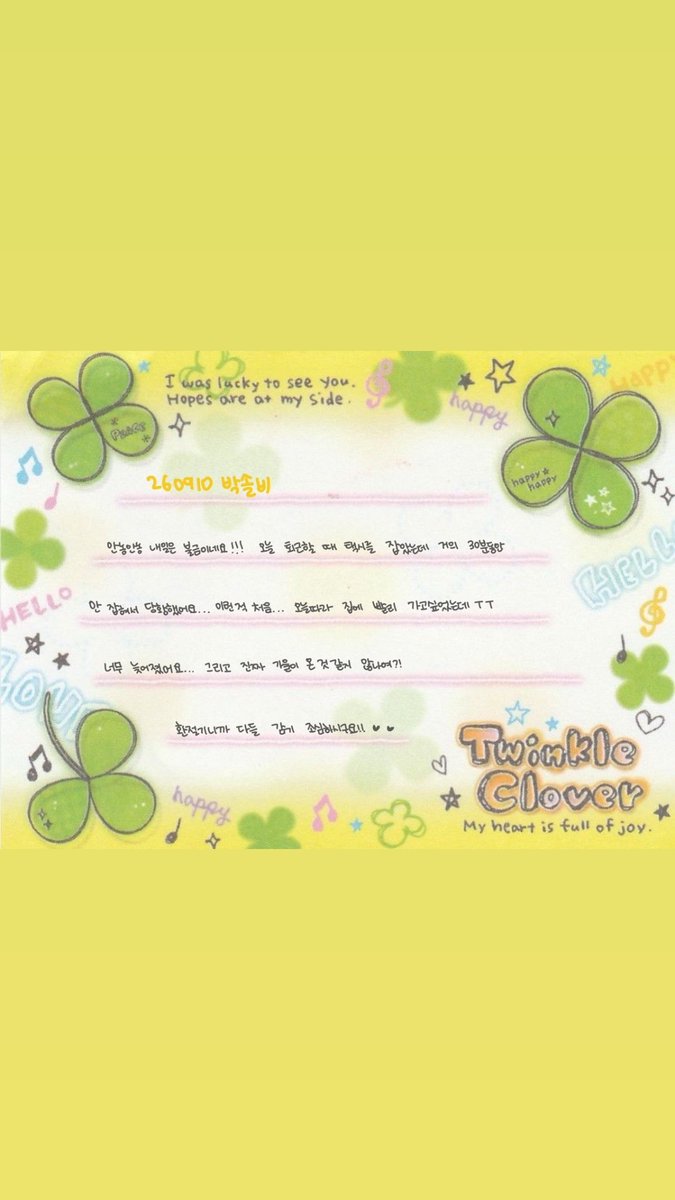 I was lucky to see you.
Hopes are at my side.
happy
HAPPY
Peace
happy
happy
HELLO
HELLO
LOVE
260910 박솔비
안농안농 내일은 불금이네요!!! 오늘 퇴근할 때 택시를 잡았는데 거의 30분동안
안 잡혀서 당황했어요... 이런적 처음... 오늘따라 집에 빨리 가고싶었는데 TT
너무 늦어졌어요... 그리고 진짜 가을이 온 것 같지 않나여?!
환절기니까 다들 감기 조심하시구요!! ♥ ♥
happy
Twinkle
Clover
My heart is full of joy.